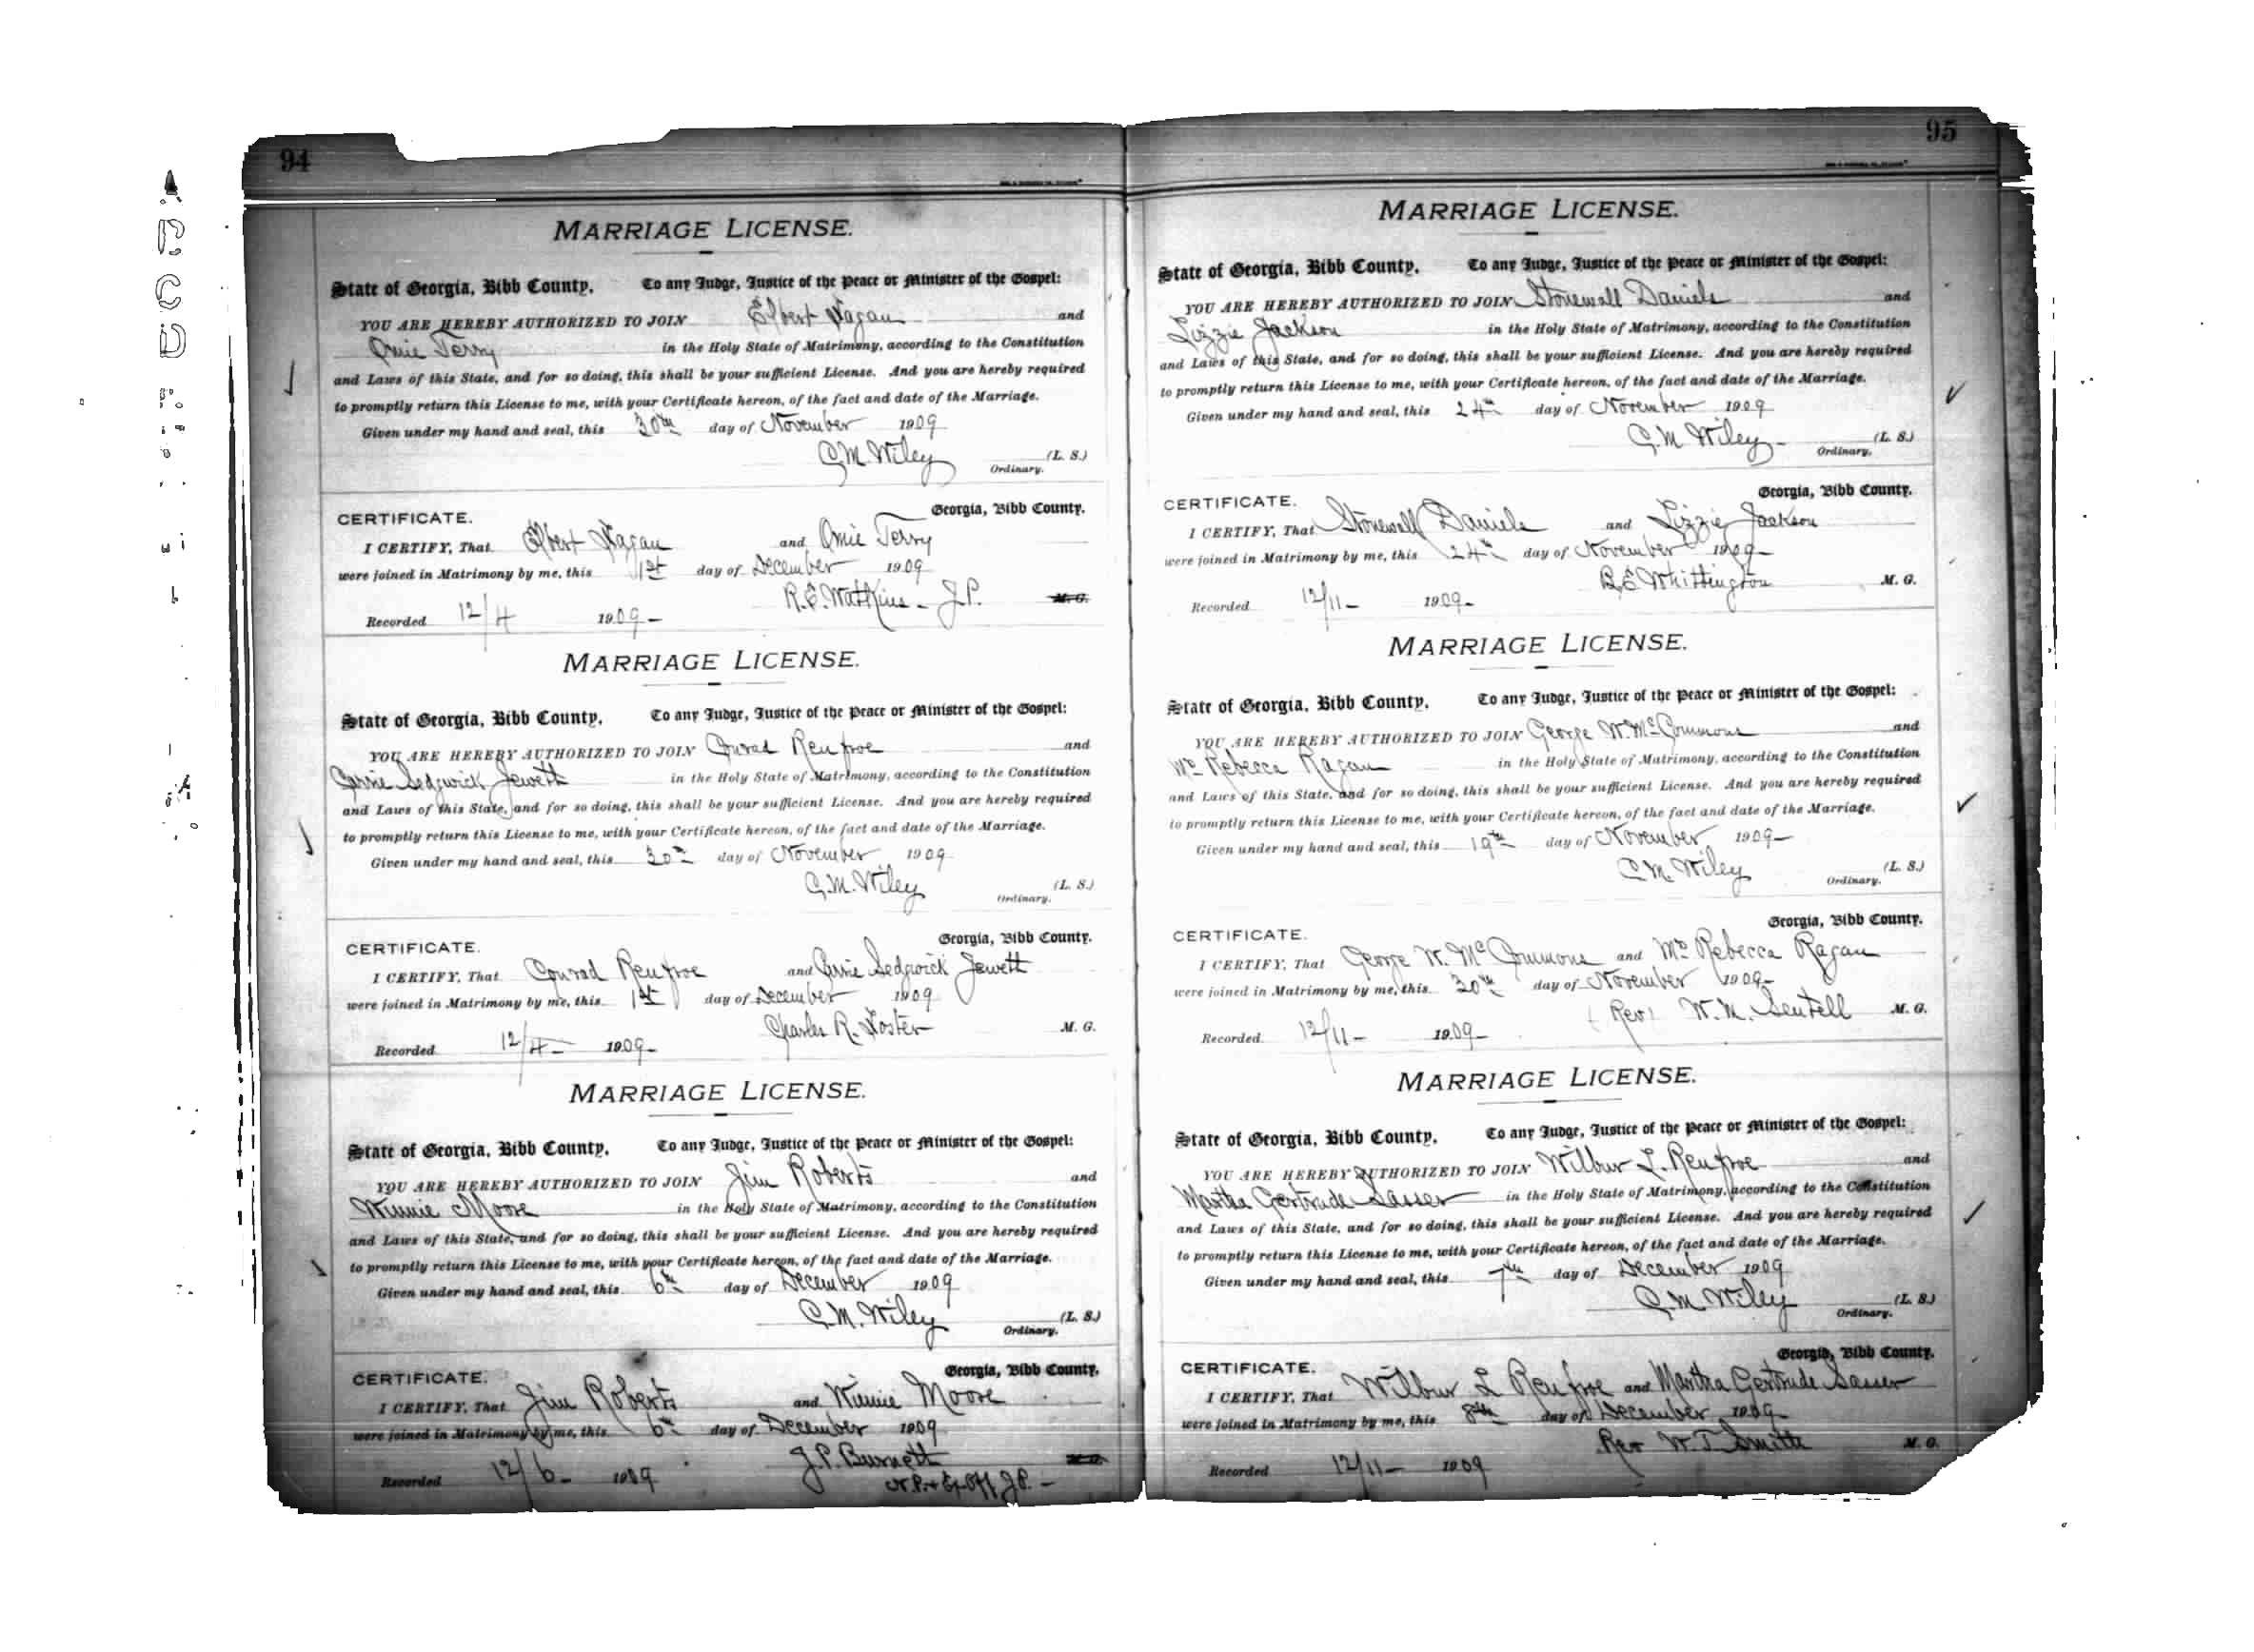 94
MARRIAGE LICENSE.
State of Georgia, Bibb County. To any Judge, Justice of the Peace or Minister of the Gospel:
YOU ARE HEREBY AUTHORIZED TO JOIN Elbert Fagan and
Omie Terry in the Holy State of Matrimony, according to the Constitution
and Laws of this State, and for so doing, this shall be your sufficient License. And you are hereby required
to promptly return this License to me, with your Certificate hereon, of the fact and date of the Marriage.
Given under my hand and seal, this 30th day of November 1909
C.M. Wiley (L. S.)
Ordinary.
CERTIFICATE. Georgia, Bibb County.
I CERTIFY, That Elbert Fagan and Omie Terry
were joined in Matrimony by me, this 1st day of December 1909
R.E. Watkins - J.P. M. G.
Recorded 12/4 1909-
MARRIAGE LICENSE.
State of Georgia, Bibb County. To any Judge, Justice of the Peace or Minister of the Gospel:
YOU ARE HEREBY AUTHORIZED TO JOIN Conrad Renfroe and
Carrie Sedgwick Jewett in the Holy State of Matrimony, according to the Constitution
and Laws of this State, and for so doing, this shall be your sufficient License. And you are hereby required
to promptly return this License to me, with your Certificate hereon, of the fact and date of the Marriage.
Given under my hand and seal, this 30th day of November 1909
C.M. Wiley (L. S.)
Ordinary.
CERTIFICATE. Georgia, Bibb County.
I CERTIFY, That Conrad Renfroe and Carrie Sedgwick Jewett
were joined in Matrimony by me, this 1st day of December 1909
Charles R. Foster M. G.
Recorded 12/4- 1909-
MARRIAGE LICENSE.
State of Georgia, Bibb County. To any Judge, Justice of the Peace or Minister of the Gospel:
YOU ARE HEREBY AUTHORIZED TO JOIN Jim Roberts and
Winnie Moore in the Holy State of Matrimony, according to the Constitution
and Laws of this State, and for so doing, this shall be your sufficient License. And you are hereby required
to promptly return this License to me, with your Certificate hereon, of the fact and date of the Marriage.
Given under my hand and seal, this 6th day of December 1909
C.M. Wiley (L. S.)
Ordinary.
CERTIFICATE. Georgia, Bibb County.
I CERTIFY, That Jim Roberts and Winnie Moore
were joined in Matrimony by me, this 6th day of December 1909
J.P. Burnett M. G.
Recorded 12/6- 1909 N.P. & Ex-Off J.P. -
95
MARRIAGE LICENSE.
State of Georgia, Bibb County. To any Judge, Justice of the Peace or Minister of the Gospel:
YOU ARE HEREBY AUTHORIZED TO JOIN Stonewall Daniels and
Lizzie Jackson in the Holy State of Matrimony, according to the Constitution
and Laws of this State, and for so doing, this shall be your sufficient License. And you are hereby required
to promptly return this License to me, with your Certificate hereon, of the fact and date of the Marriage.
Given under my hand and seal, this 24th day of November 1909
C.M. Wiley- (L. S.)
Ordinary.
CERTIFICATE. Georgia, Bibb County.
I CERTIFY, That Stonewall Daniels and Lizzie Jackson
were joined in Matrimony by me, this 24th day of November 1909-
B.E. Whittington M. G.
Recorded 12/11- 1909-
MARRIAGE LICENSE.
State of Georgia, Bibb County. To any Judge, Justice of the Peace or Minister of the Gospel:
YOU ARE HEREBY AUTHORIZED TO JOIN George W. McCommons and
Mrs Rebecca Ragan in the Holy State of Matrimony, according to the Constitution
and Laws of this State, and for so doing, this shall be your sufficient License. And you are hereby required
to promptly return this License to me, with your Certificate hereon, of the fact and date of the Marriage.
Given under my hand and seal, this 19th day of November 1909-
C.M. Wiley (L. S.)
Ordinary.
CERTIFICATE. Georgia, Bibb County.
I CERTIFY, That George W. McCommons and Mrs Rebecca Ragan
were joined in Matrimony by me, this 30th day of November 1909-
(Rev) W.N. Sentell M. G.
Recorded 12/11- 1909-
MARRIAGE LICENSE.
State of Georgia, Bibb County. To any Judge, Justice of the Peace or Minister of the Gospel:
YOU ARE HEREBY AUTHORIZED TO JOIN Wilbur L. Renfroe and
Martha Gertrude Sasser in the Holy State of Matrimony, according to the Constitution
and Laws of this State, and for so doing, this shall be your sufficient License. And you are hereby required
to promptly return this License to me, with your Certificate hereon, of the fact and date of the Marriage.
Given under my hand and seal, this 7th day of December 1909
C.M. Wiley (L. S.)
Ordinary.
CERTIFICATE. Georgia, Bibb County.
I CERTIFY, That Wilbur L Renfroe and Martha Gertrude Sasser
were joined in Matrimony by me, this 8th day of December 1909
Rev W.T. Smith M. G.
Recorded 12/11- 1909